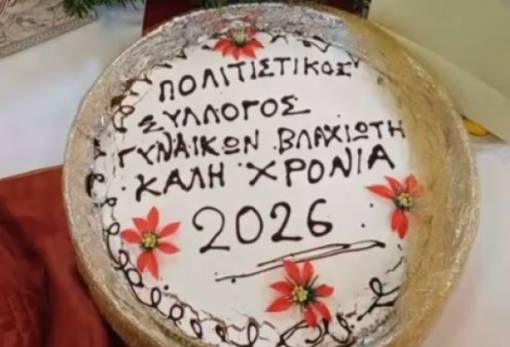 ΠΟΛΙΤΙΣΤΙΚΟΣ
ΣΥΛΛΟΓΟΣ
ΓΥΝΑΙΚΩΝ ΒΛΑΧΙΩΤΗ
ΚΑΛΗ ΧΡΟΝΙΑ
2026